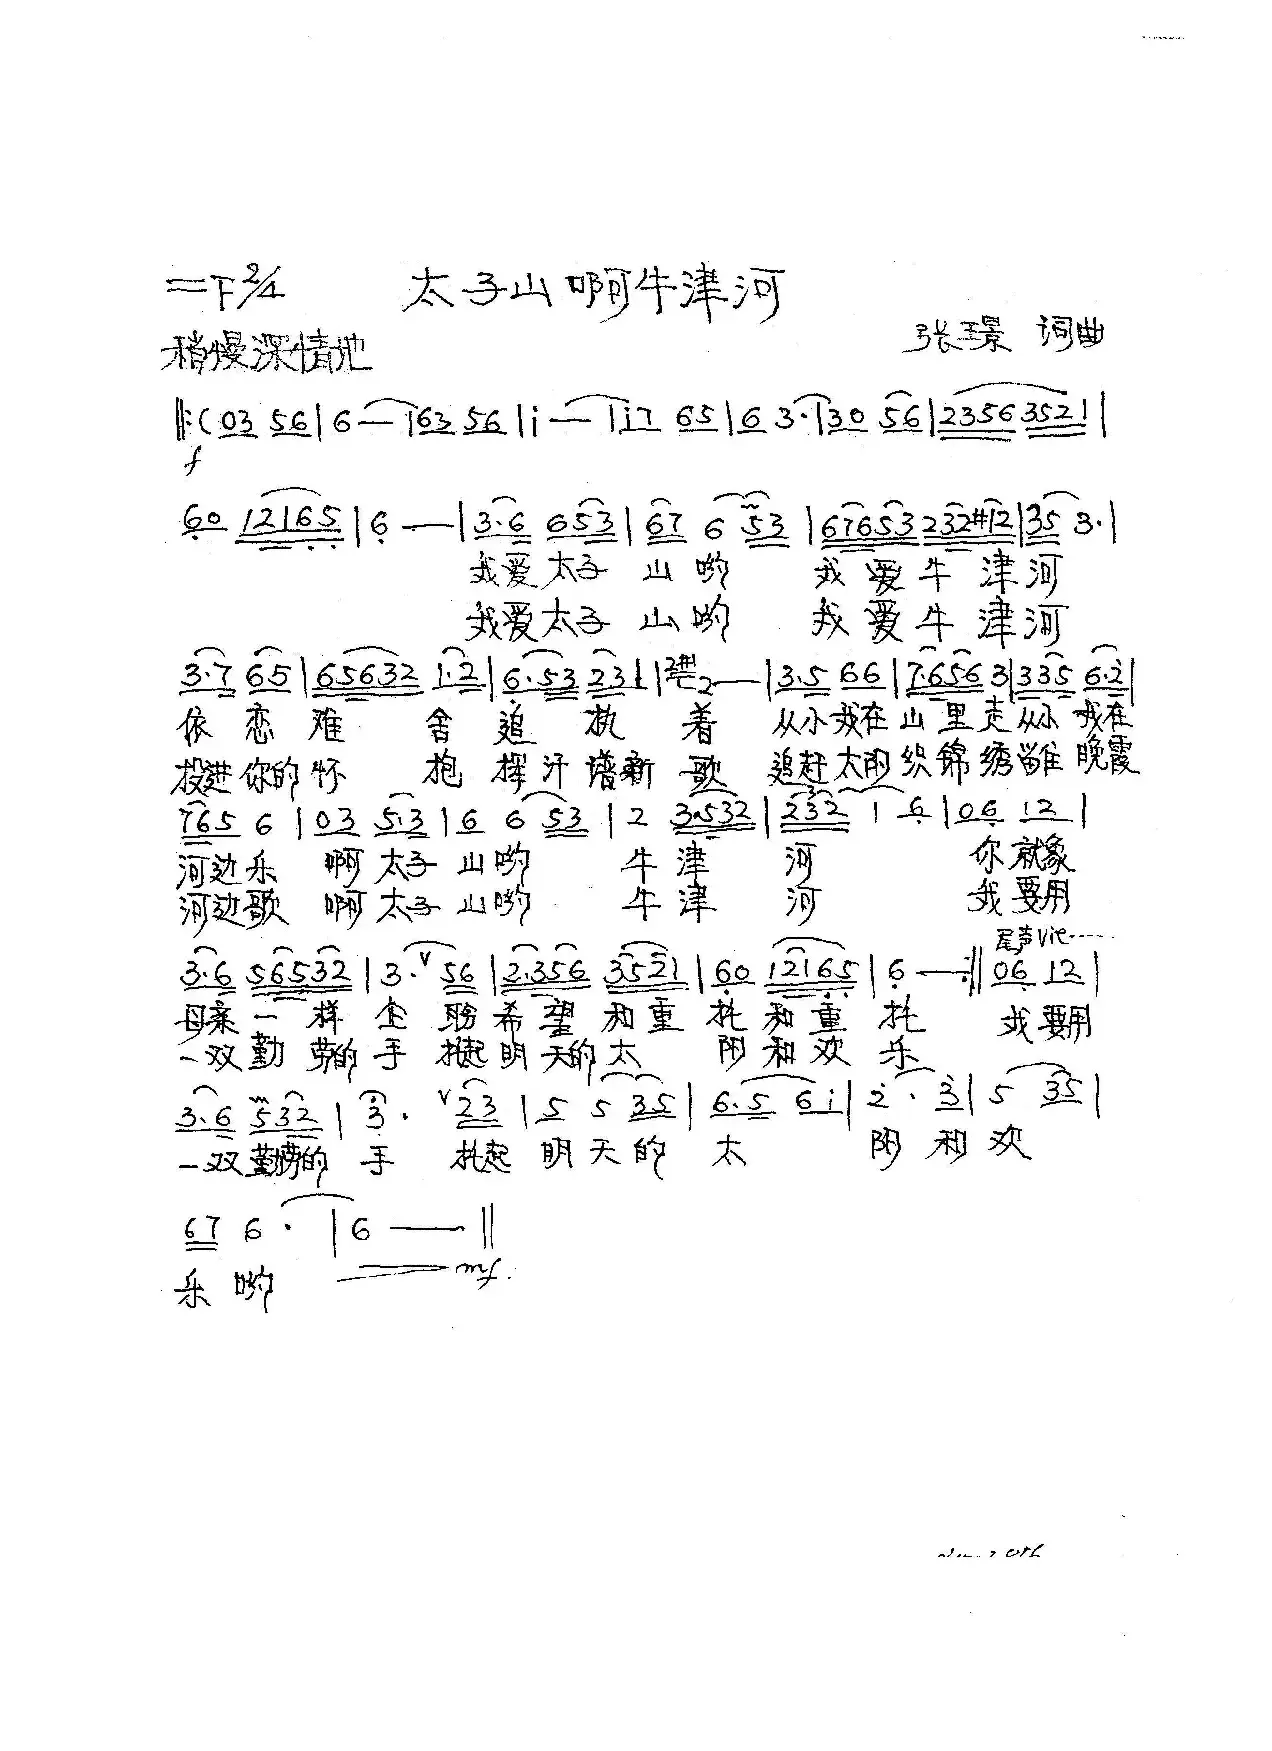 =F 2/4 太子山啊牛津河
稍慢深情地 张璟 词曲
‖:(03 56|6—|63 56|i—|i7 65|6 3·|30 56|2356 3521|
f
60 12165|6 —|3·6 653|67 6 53|67653 232#12|35 3·|
我爱太子 山哟 我爱牛津河
我爱太子 山哟 我爱牛津河
3·7 65|65632 1·2|6·53 231|2—|3·5 66|7·656 3|335 6·2|
依恋难舍追执着 从小我在山里走从小我在
投进你的怀抱挥汗谱新歌 追赶太阳织锦绣 晚霞
765 6|03 5·3|6 6 53|2 3·532|232 1 6|06 12|
河边乐 啊太子山哟 牛津河 你就象
河边歌 啊太子山哟 牛津河 我要用
尾声
3·6 56532|3·v 56|2·356 3521|60 12165|6—:‖06 12|
母亲一样企盼希望和重托和重托 我要用
一双勤劳的手托起明天的太阳和欢乐
3·6 532|3· v23|5 5 35|6·5 6i|2·3|5 35|
一双勤劳的手 托起明天的太 阳和欢
67 6·|6—‖
乐哟